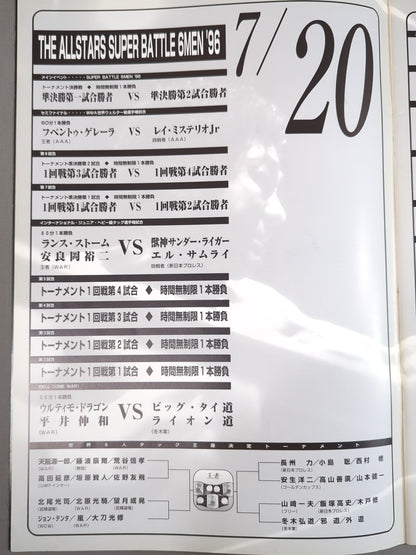 THE ALLSTARS SUPER BATTLE 6MEN '96
7/20
メインイベント・・・・・SUPER BATTLE 6MEN '96
トーナメント決勝戦 ◆ 時間無制限1本勝負
準決勝第一試合勝者 VS 準決勝第2試合勝者
セミファイナル・・・・・WWA世界ウェルター級選手権試合
60分1本勝負
フベントゥ・ゲレーラ VS レイ・ミステリオJr
王者（AAA） 挑戦者（AAA）
第8試合
トーナメント準決勝第2試合 ◆ 時間無制限1本勝負
1回戦第3試合勝者 VS 1回戦第4試合勝者
第7試合
トーナメント準決勝第1試合 ◆ 時間無制限1本勝負
1回戦第1試合勝者 VS 1回戦第2試合勝者
インターナショナル・ジュニア・ヘビー級タッグ選手権試合
60分1本勝負
ランス・ストーム VS 獣神サンダー・ライガー
安良岡裕二 エル・サムライ
王者（WAR） 挑戦者（新日本プロレス）
第5試合
トーナメント1回戦第4試合 ◆ 時間無制限1本勝負
第4試合
トーナメント1回戦第3試合 ◆ 時間無制限1本勝負
第3試合
トーナメント1回戦第2試合 ◆ 時間無制限1本勝負
第2試合
トーナメント1回戦第1試合 ◆ 時間無制限1本勝負
30分1本勝負
ウルティモ・ドラゴン VS ビッグ・タイ道
平井伸和 ライオン道
（WAR） （冬木軍）
世界6人タッグ王座決定トーナメント
天龍源一郎／藤波辰爾／荒谷信孝
（WAR）
高田延彦／垣原賢人／佐野友飛
（UWFインター）
北尾光司／北原光騎／望月成晃
（武輝道場） （WAR） （武輝道場）
ジョン・テンタ／嵐／大刀光修
（WCW） （WAR）
王者
長州 力／小島 聡／西村 修
（新日本プロレス）
安生洋二／高山善廣／山本健一
（ゴールデンカップス）
山崎一夫／飯塚高史／木戸修
（フリー） （新日本プロレス）
冬木弘道／邪道／外道
（冬木軍）